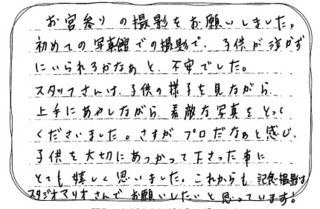 お宮参りの撮影をお願いしました。
初めての写真館での撮影で、子供が泣かず
にいられるかなぁと、不安でした。
スタッフさんは、子供の様子を見ながら
上手にあやしながら、素敵な写真をとって
くださいました。さすがプロだなぁと感じ、
子供を大切にあつかって下さった事に
とても嬉しく思いました。これからも記念撮影は
スタジオマリオさんでお願いしたいと思っています!